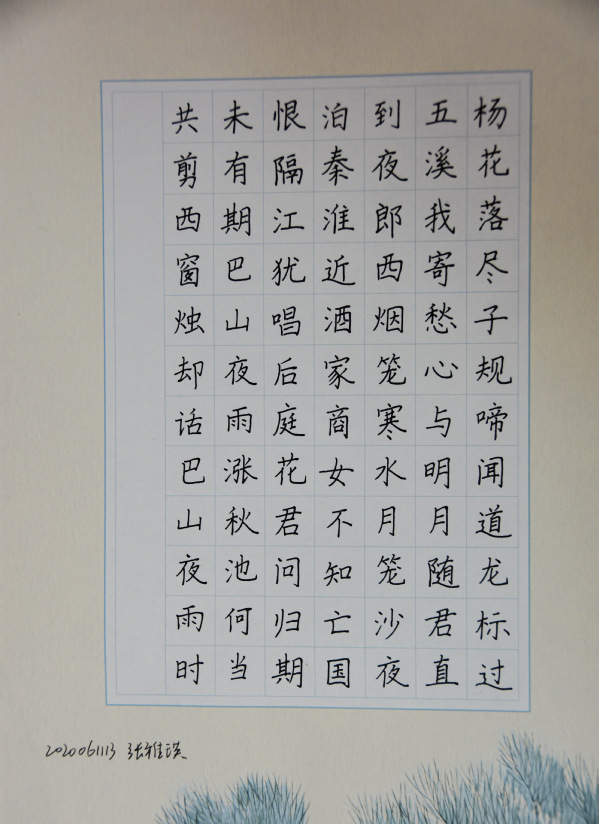 杨花落尽子规啼闻道龙标过
五溪我寄愁心与明月随君直
到夜郎西烟笼寒水月笼沙夜
泊秦淮近酒家商女不知亡国
恨隔江犹唱后庭花君问归期
未有期巴山夜雨涨秋池何当
共剪西窗烛却话巴山夜雨时
2020061113 张雅淇